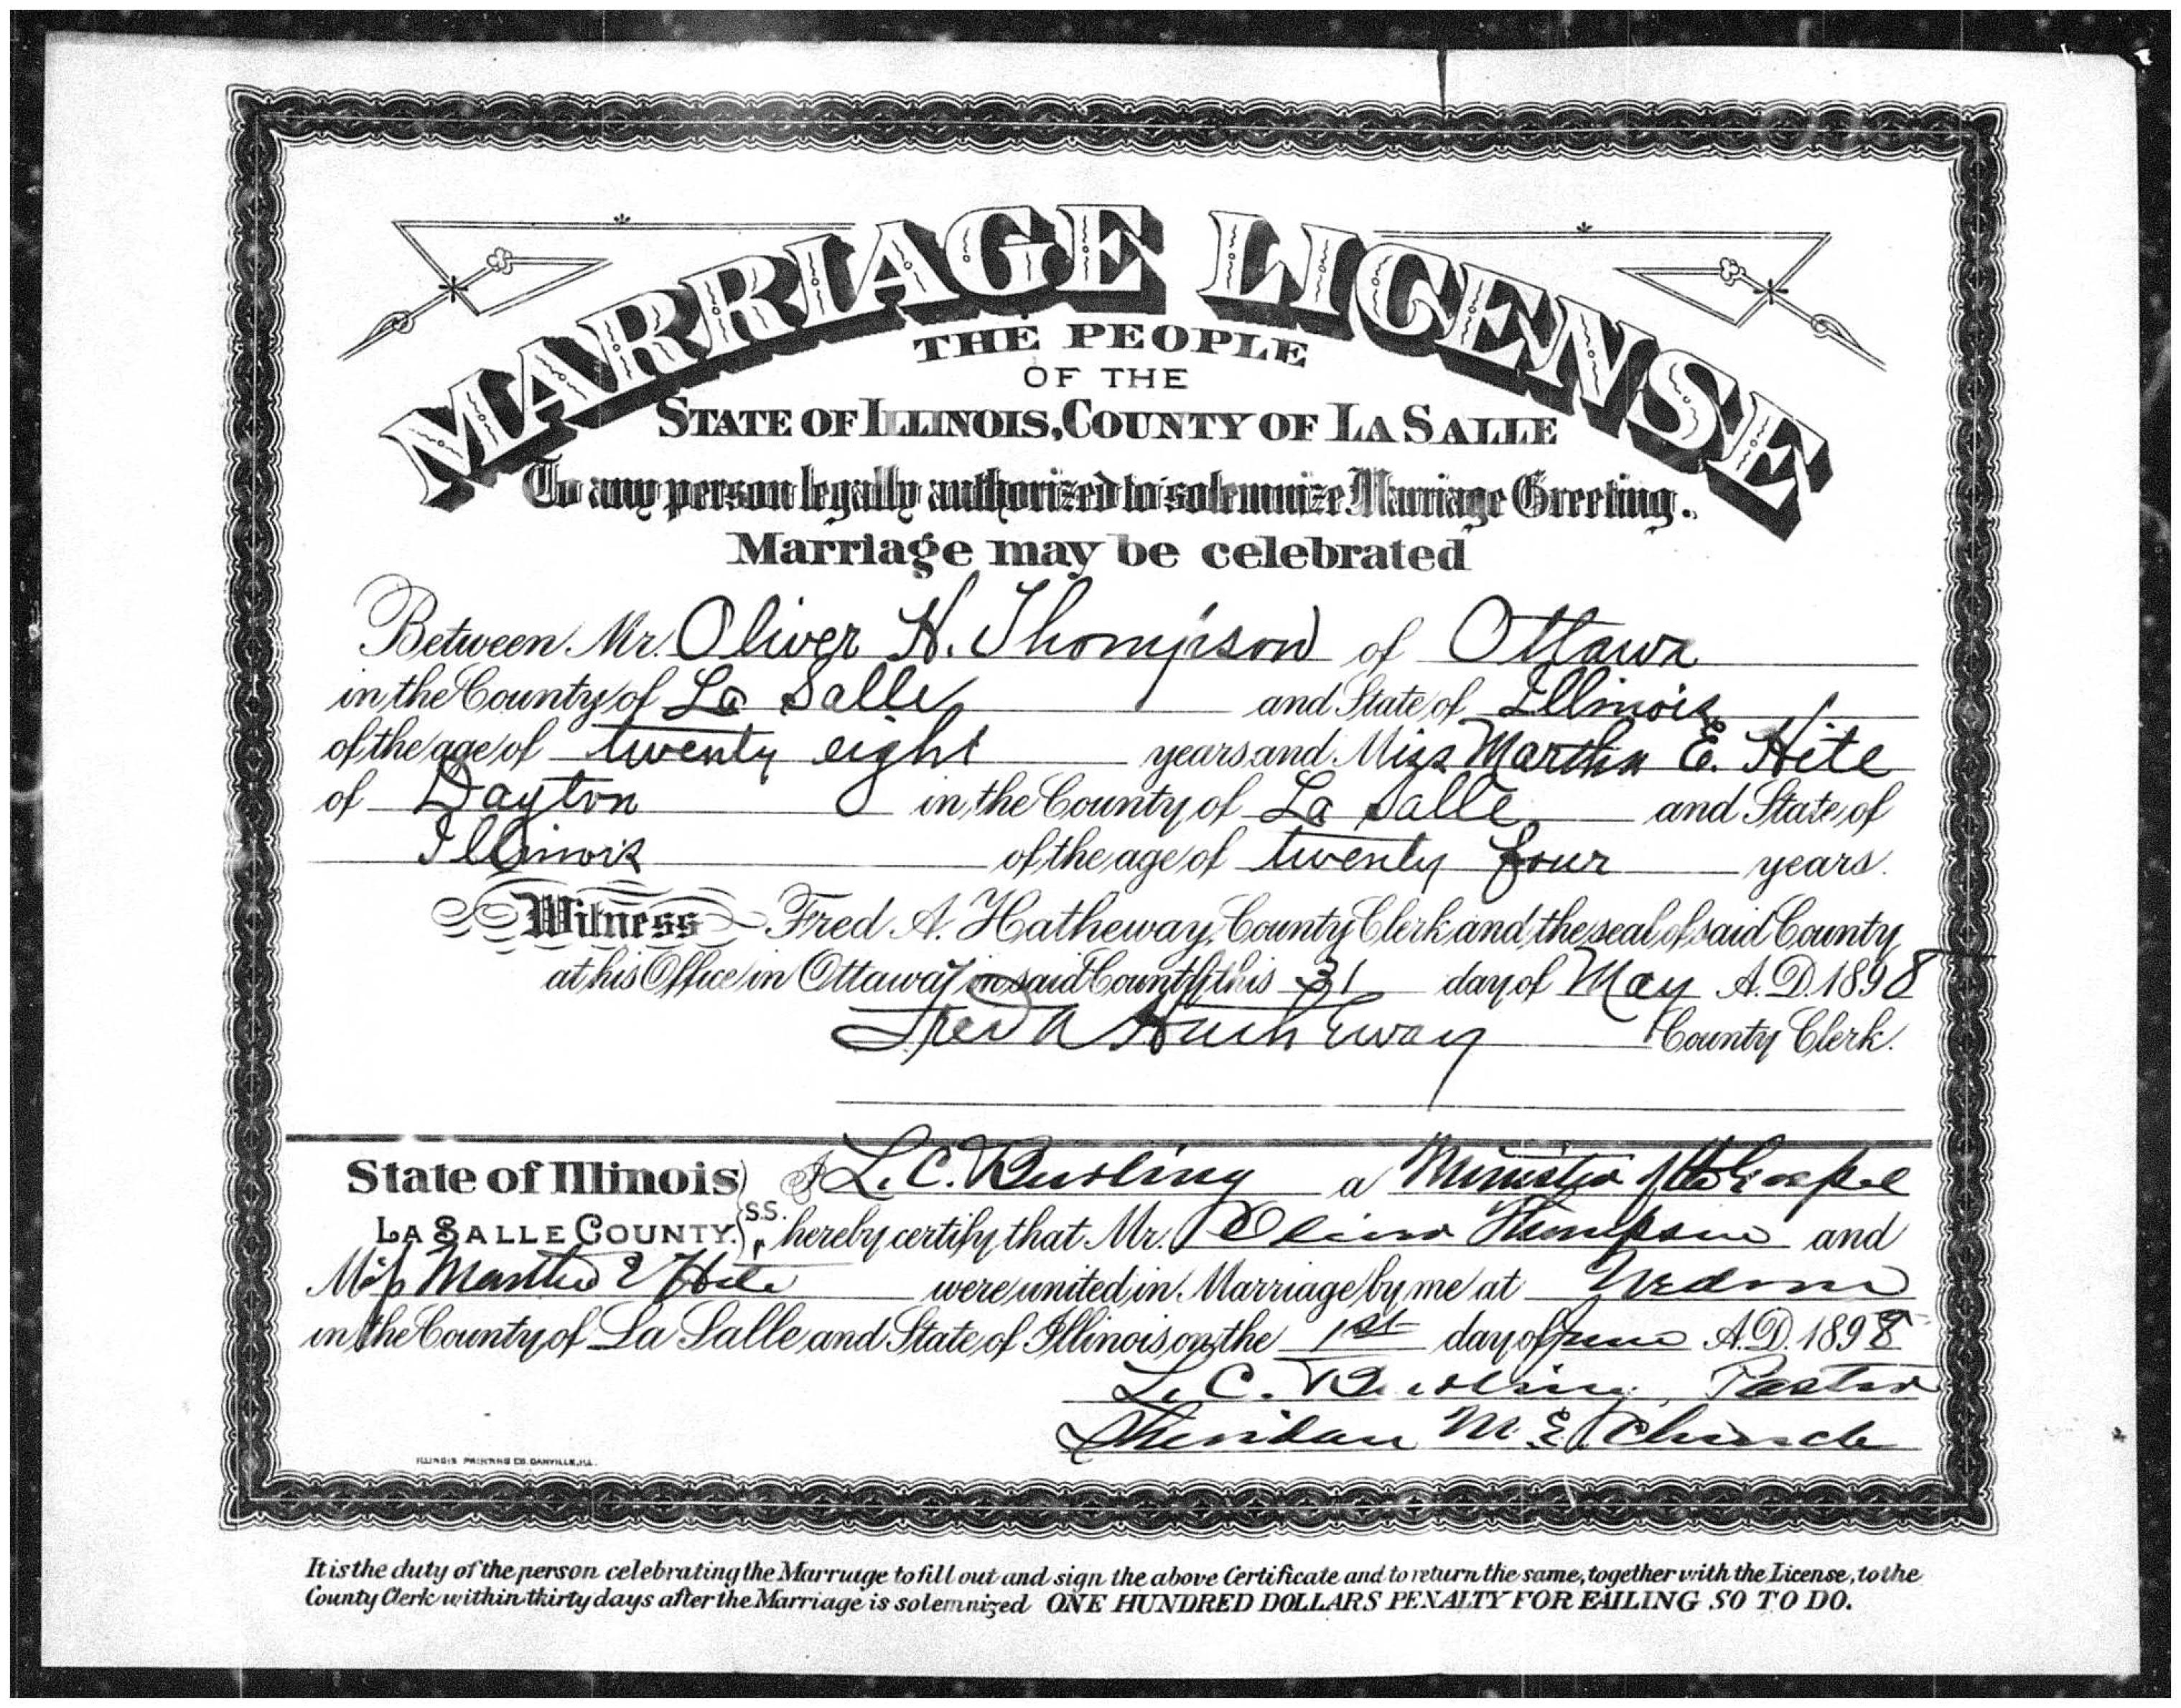 MARRIAGE LICENSE
THE PEOPLE
OF THE
STATE OF ILLINOIS, COUNTY OF LA SALLE
To any person legally authorized to solemnize Marriage Greeting.
Marriage may be celebrated
Between Mr. Oliver H. Thompson of Ottawa
in the County of La Salle and State of Illinois
of the age of twenty eight years and Miss Martha E. Hite
of Dayton in the County of La Salle and State of
Illinois of the age of twenty four years.
Witness Fred A. Hatheway, County Clerk and the seal of said County
at his Office in Ottawa in said County this 31 day of May A.D. 1898
Fred A Hatheway County Clerk.
State of Illinois } I L. C. Burling a Minister of the Gospel
LA SALLE COUNTY. } S.S. hereby certify that Mr. Oliver Thompson and
Miss Martha E Hite were united in Marriage by me at
in the County of La Salle and State of Illinois on the 1st day of June A.D. 1898
L. C. Burling, Pastor
Sheridan M. E. Church
ILLINOIS PRINTING CO. DANVILLE, ILL.
It is the duty of the person celebrating the Marriage to fill out and sign the above Certificate and to return the same, together with the License, to the
County Clerk within thirty days after the Marriage is solemnized ONE HUNDRED DOLLARS PENALTY FOR FAILING SO TO DO.